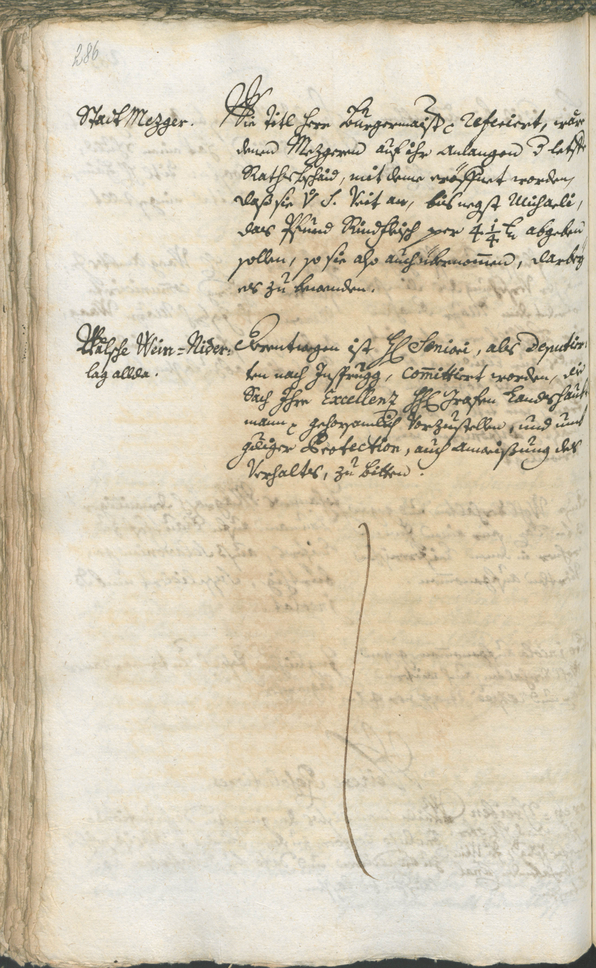 286
Stadt Mezger.
Wie titl Herr Burgermaister referiert, wäre
denen Mezgeren auf ihr anlangen 3 letste
Rathsbschaid, mit deme eröffnet worden,
daß sie V. S. Veit an, bis negst Michaeli,
das Pfund Rindfleisch per 4 1/4 kr abgeben
sollen, so sie also auch übernommen, darbey
es zu bewenden.
Wälsche Wein=Nider-
lag allda.
Derentwegen ist HH Seniori, als Deputier-
ten nach Insprugg, committiert worden, die
Sach Ihro Excellenz HH Grafen Landshaubt-
mann gehorsamlich vorzustellen, und umb
Protection, auch anweisung des
Verhaltes, zu bitten.